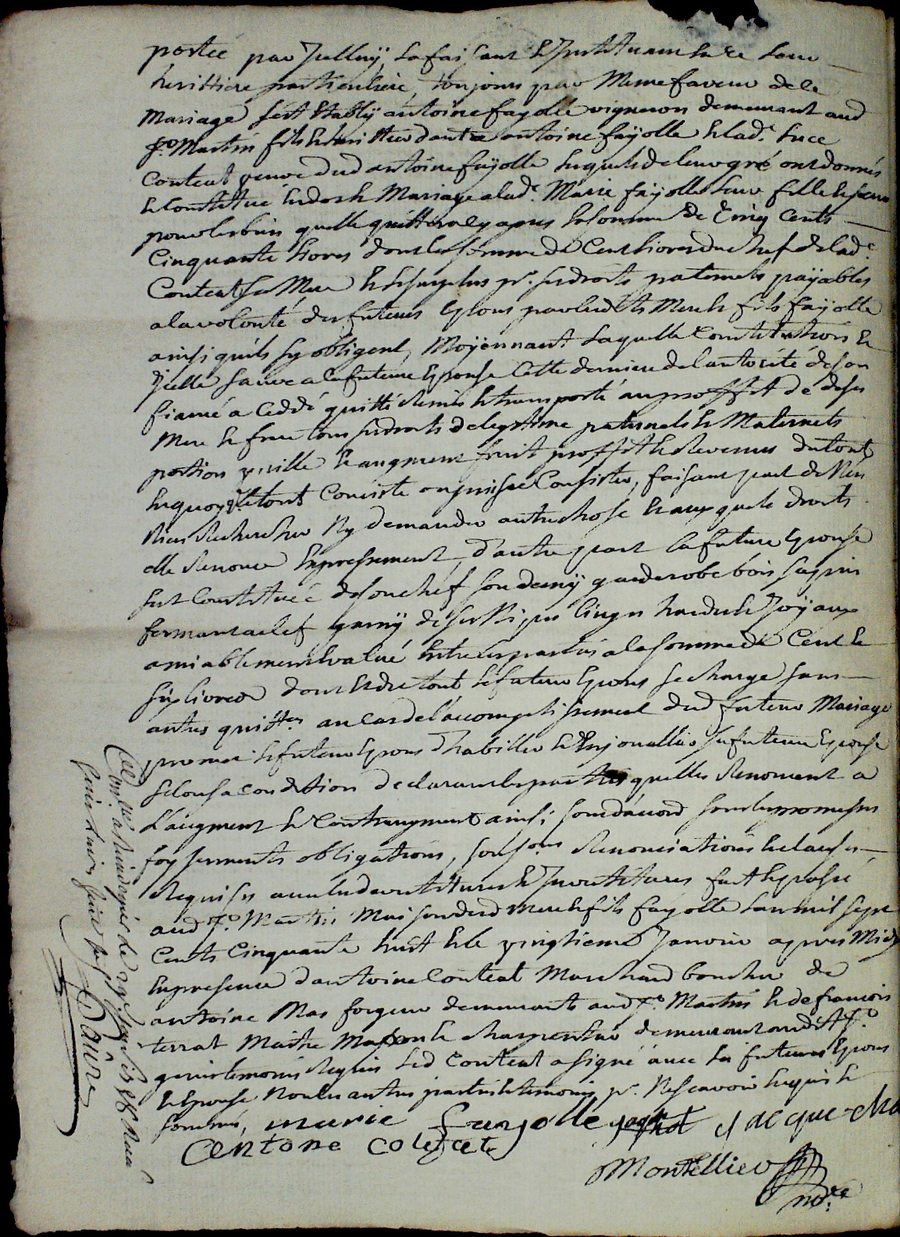 portée par Julluy, la faisant & Instituant sa
herittiere particuliere, toujours par Meme faveur de le
Mariage s'est Etably antoine fayolle vigneron demeurant aud
St. Martin fils & heritier d'autre antoine fayolle & lad. Luce
Conteat veuve dud antoine fayolle lesquels de leur gré ont donnés
& Constitué En dot & Mariage a lad. Marie fayolle leur fille & soeur
pour les biens quelle quittera cy apres la somme de Cinq Cents
Cinquante livres dont la somme de Cent livres du chef de lad.
Conteat sa Mere & le surplus pr. ses droits paternels payables
a la volonté des futeurs Epoux par lesdts Mere & fils fayolle
ainsi quils sy obligent, Moyennant laquelle Constitution &
Icelle sauve a la future Epouse Cette derniere de l'autorité de son
fiancé a Ceddé quitté Remis & transporté au proffit de desd
Mere & frere tous ses droits de legitime paternels & Maternels
portion virille & augment fruit proffit & Revenus du tout
En quoy le tout Consiste ou puisse Consister, faisant pact de N'en
Rien Rechercher Ny demander autre chose & auxquels droits
elle Renonce Expressement, d'autre part la future Epouse
s'est Constituée de son chef son garderobe bois sapin
fermant a clef garny de ses linges hardes & Joyaux
amiablement Evalué Entre les parties a la somme de Cent &
six livres dont & du tout le futeur Epoux se charge sans
autres quittes. au Cas de l'accomplissement dud futeur Mariage
promet le futeur Epoux d'habiller & Enjouailler sa future Epouse
selon sa condition declarant les parties quelles Renoncent a
L'augment & Contreaugment ainsi sont d'accord sous les promesses
foy serments obligations, Renonciations & clauses
Requises avec Investitures fait & passé
aud St. Martin Maison desd Mere & fils fayolle L'an mil sept
Cents Cinquante huit & le vingtieme Janvier apres Midy
En presence d'antoine Conteat Marchand boucher de
antoine Mas forgeur demeurants aud St. Martin & de francois
terrat Maitre Masson & charpentier demeurant aud St.
temoins Requis led Conteat a signé avec les futeurs Epoux
& Epouse Non les autres parties & temoins pr. Ne scavoir Enquis &
sommés, marie fayolle Jacque
Centone Colette
Montellier
nore.
Daure